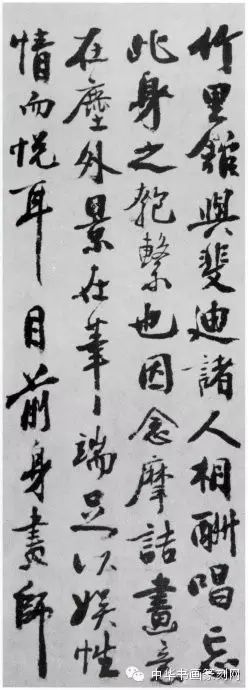 竹里館與斐迪諸人相酬唱忘
此身之匏繫也因念摩詰畫意
在塵外景在筆端足以娛性
情而悅耳目前身畫師
中华书画篆刻网